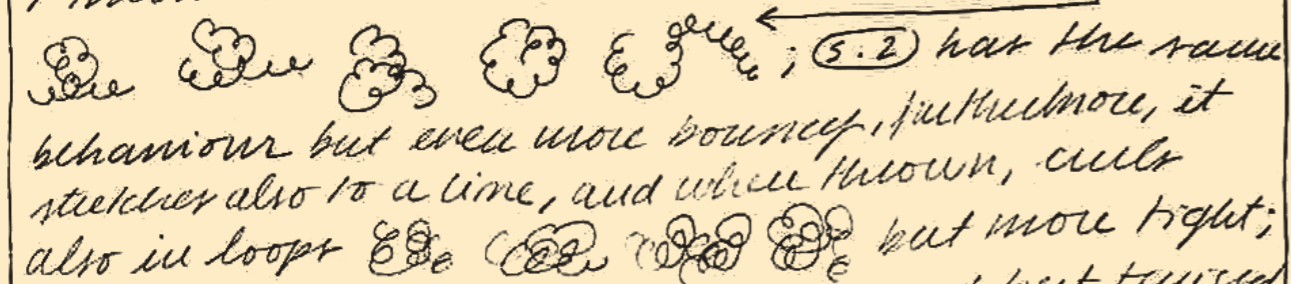 ; 5.2 has the same
behaviour but even more bouncy, furthermore, it
stretches also to a line, and when thrown, curls
also in loops but more tight;